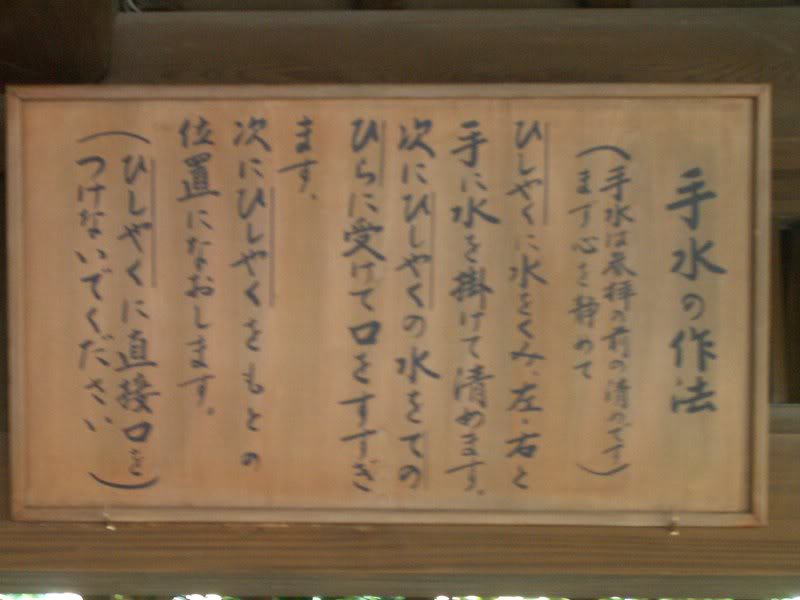 手水の作法
(手水は参拝の前の清めです)
まず心を静めて
ひしゃくに水をくみ、左・右と
手に水を掛けて清めます。
次にひしゃくの水をての
ひらに受けて口をすすぎ
ます。
次にひしゃくをもとの
位置になおします。
(ひしゃくに直接口を
つけないでください)